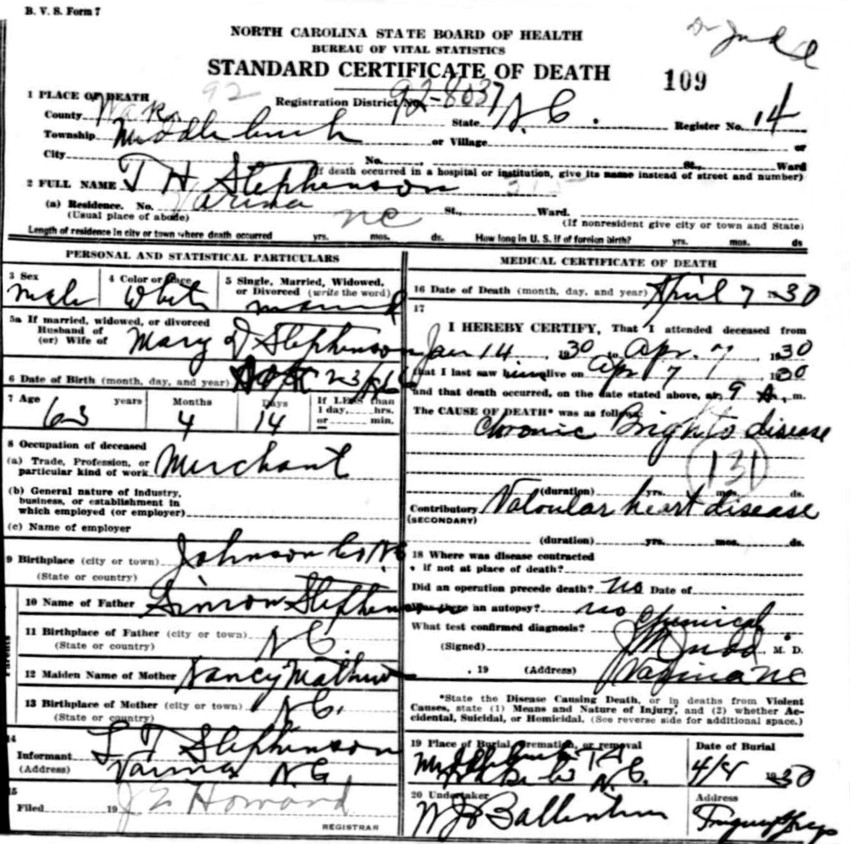 B. V. S. Form 7
NORTH CAROLINA STATE BOARD OF HEALTH
BUREAU OF VITAL STATISTICS
STANDARD CERTIFICATE OF DEATH
Dr Judd
109
1 PLACE OF DEATH 92
Registration District No. 92-8037
County Wake State N. C. Register No. 14
Township Middle Creek or Village or
City No. St., Ward
(If death occurred in a hospital or institution, give its name instead of street and number)
2 FULL NAME T H Stephenson
(a) Residence. No. Varina NC St., Ward.
(Usual place of abode) (If nonresident give city or town and State)
Length of residence in city or town where death occurred yrs. mos. ds. How long in U. S. if of foreign birth? yrs. mos. ds
PERSONAL AND STATISTICAL PARTICULARS
3 Sex Male
4 Color or Race White
5 Single, Married, Widowed, or Divorced (write the word) married
5a If married, widowed, or divorced
Husband of
(or) Wife of Mary D Stephenson
6 Date of Birth (month, day, and year) 23
7 Age 63 years 4 Months 14 Days If LESS than 1 day, hrs. or min.
8 Occupation of deceased
(a) Trade, Profession, or particular kind of work Merchant
(b) General nature of industry,
business, or establishment in
which employed (or employer)
(c) Name of employer
9 Birthplace (city or town) Johnson Co N C
(State or country)
Parents
10 Name of Father Simon Stephenson
11 Birthplace of Father (city or town) N C.
(State or country)
12 Maiden Name of Mother Nancy
13 Birthplace of Mother (city or town) N C.
(State or country)
14
Informant L T Stephenson
(Address) Varina N C
15
Filed 19 Howard
REGISTRAR
MEDICAL CERTIFICATE OF DEATH
16 Date of Death (month, day, and year) April 7 1930
17
I HEREBY CERTIFY, That I attended deceased from
Jan 14, 1930 to Apr. 7, 1930
that I last saw him alive on Apr 7, 1930
and that death occurred, on the date stated above, at 9 A. m.
The CAUSE OF DEATH* was as follows:
Chronic Brights disease
131
(duration) yrs. mos. ds.
Contributory Valvular heart disease
(SECONDARY)
(duration) yrs. mos. ds.
18 Where was disease contracted
if not at place of death?
Did an operation precede death? no Date of
Was there an autopsy? no
What test confirmed diagnosis? Chemical
(Signed) J M Judd M. D.
, 19 (Address) Varina NC
*State the Disease Causing Death, or in deaths from Violent
Causes, state (1) Means and Nature of Injury, and (2) whether Ac-
cidental, Suicidal, or Homicidal. (See reverse side for additional space.)
19 Place of Burial, Cremation, or removal
Middle Creek
N. C.
Date of Burial
4/8 1930
20 Undertaker
W J Ballentine
Address